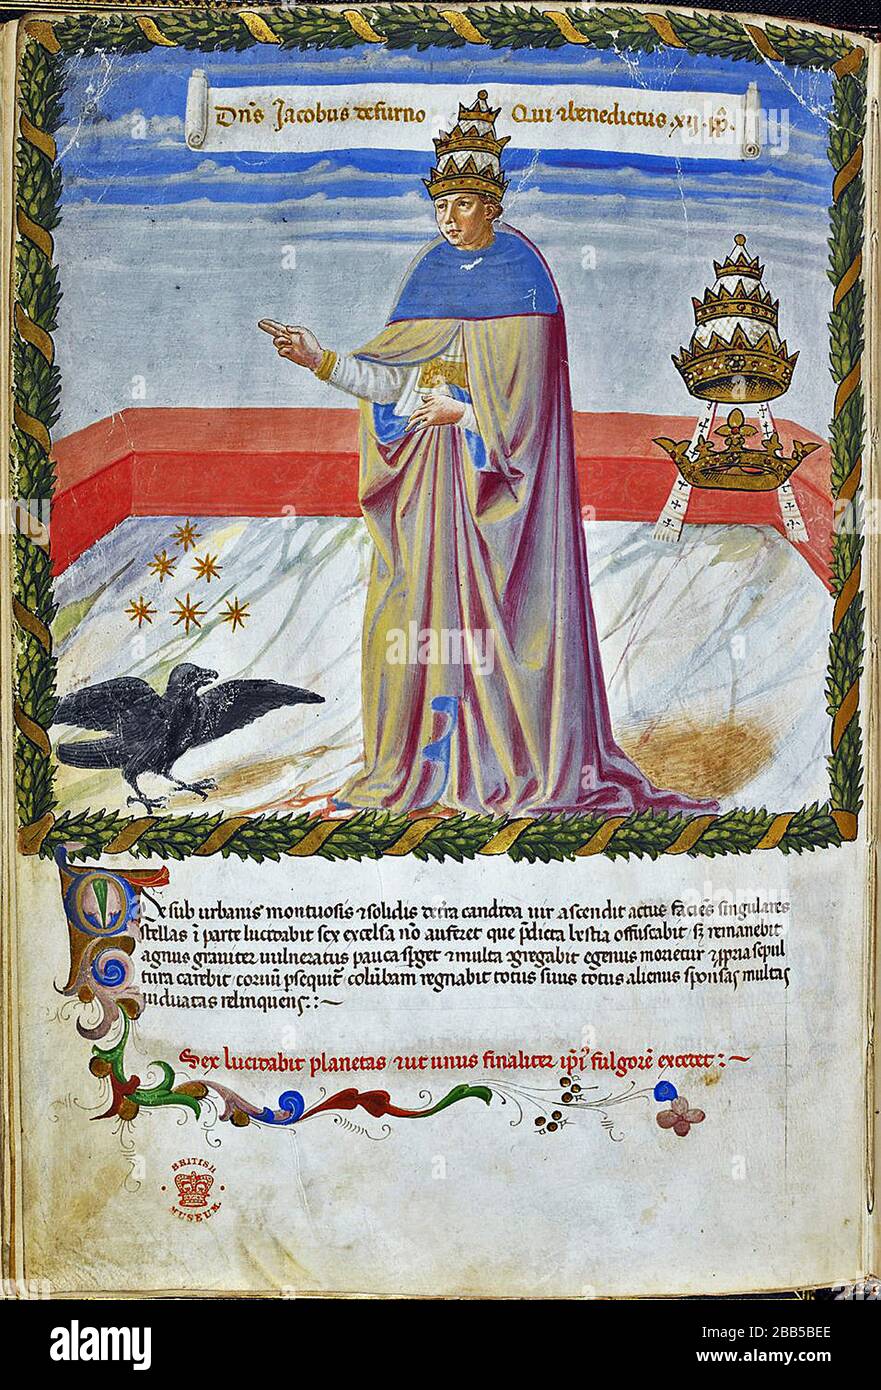 Dn̄s Jacobus de furno Qui & benedictus .xij. pp̄.
De sub urbanis montuosis & solidis terra candida uir ascendit actus facies singulares
stellas i parte lucidabit sex excelsa nō auferet que p̄dicta bestia offuscabit sꝫ remanebit
agnus grauiter uulneratus pauca sp̄get & multa ꝯgregabit egenus morietur & ꝓpria sepul
tura carebit coruū ꝑsequit̄ colūbam regnabit totus suus totus alienus sponsas multas
uiduatas relinquens::~
Sex lucidabit planetas & ut unus finaliter ip̄i fulgorē excedet:~
BRITISH
MUSEUM.
alamy
Image ID: 2BB5BEE
www.alamy.com